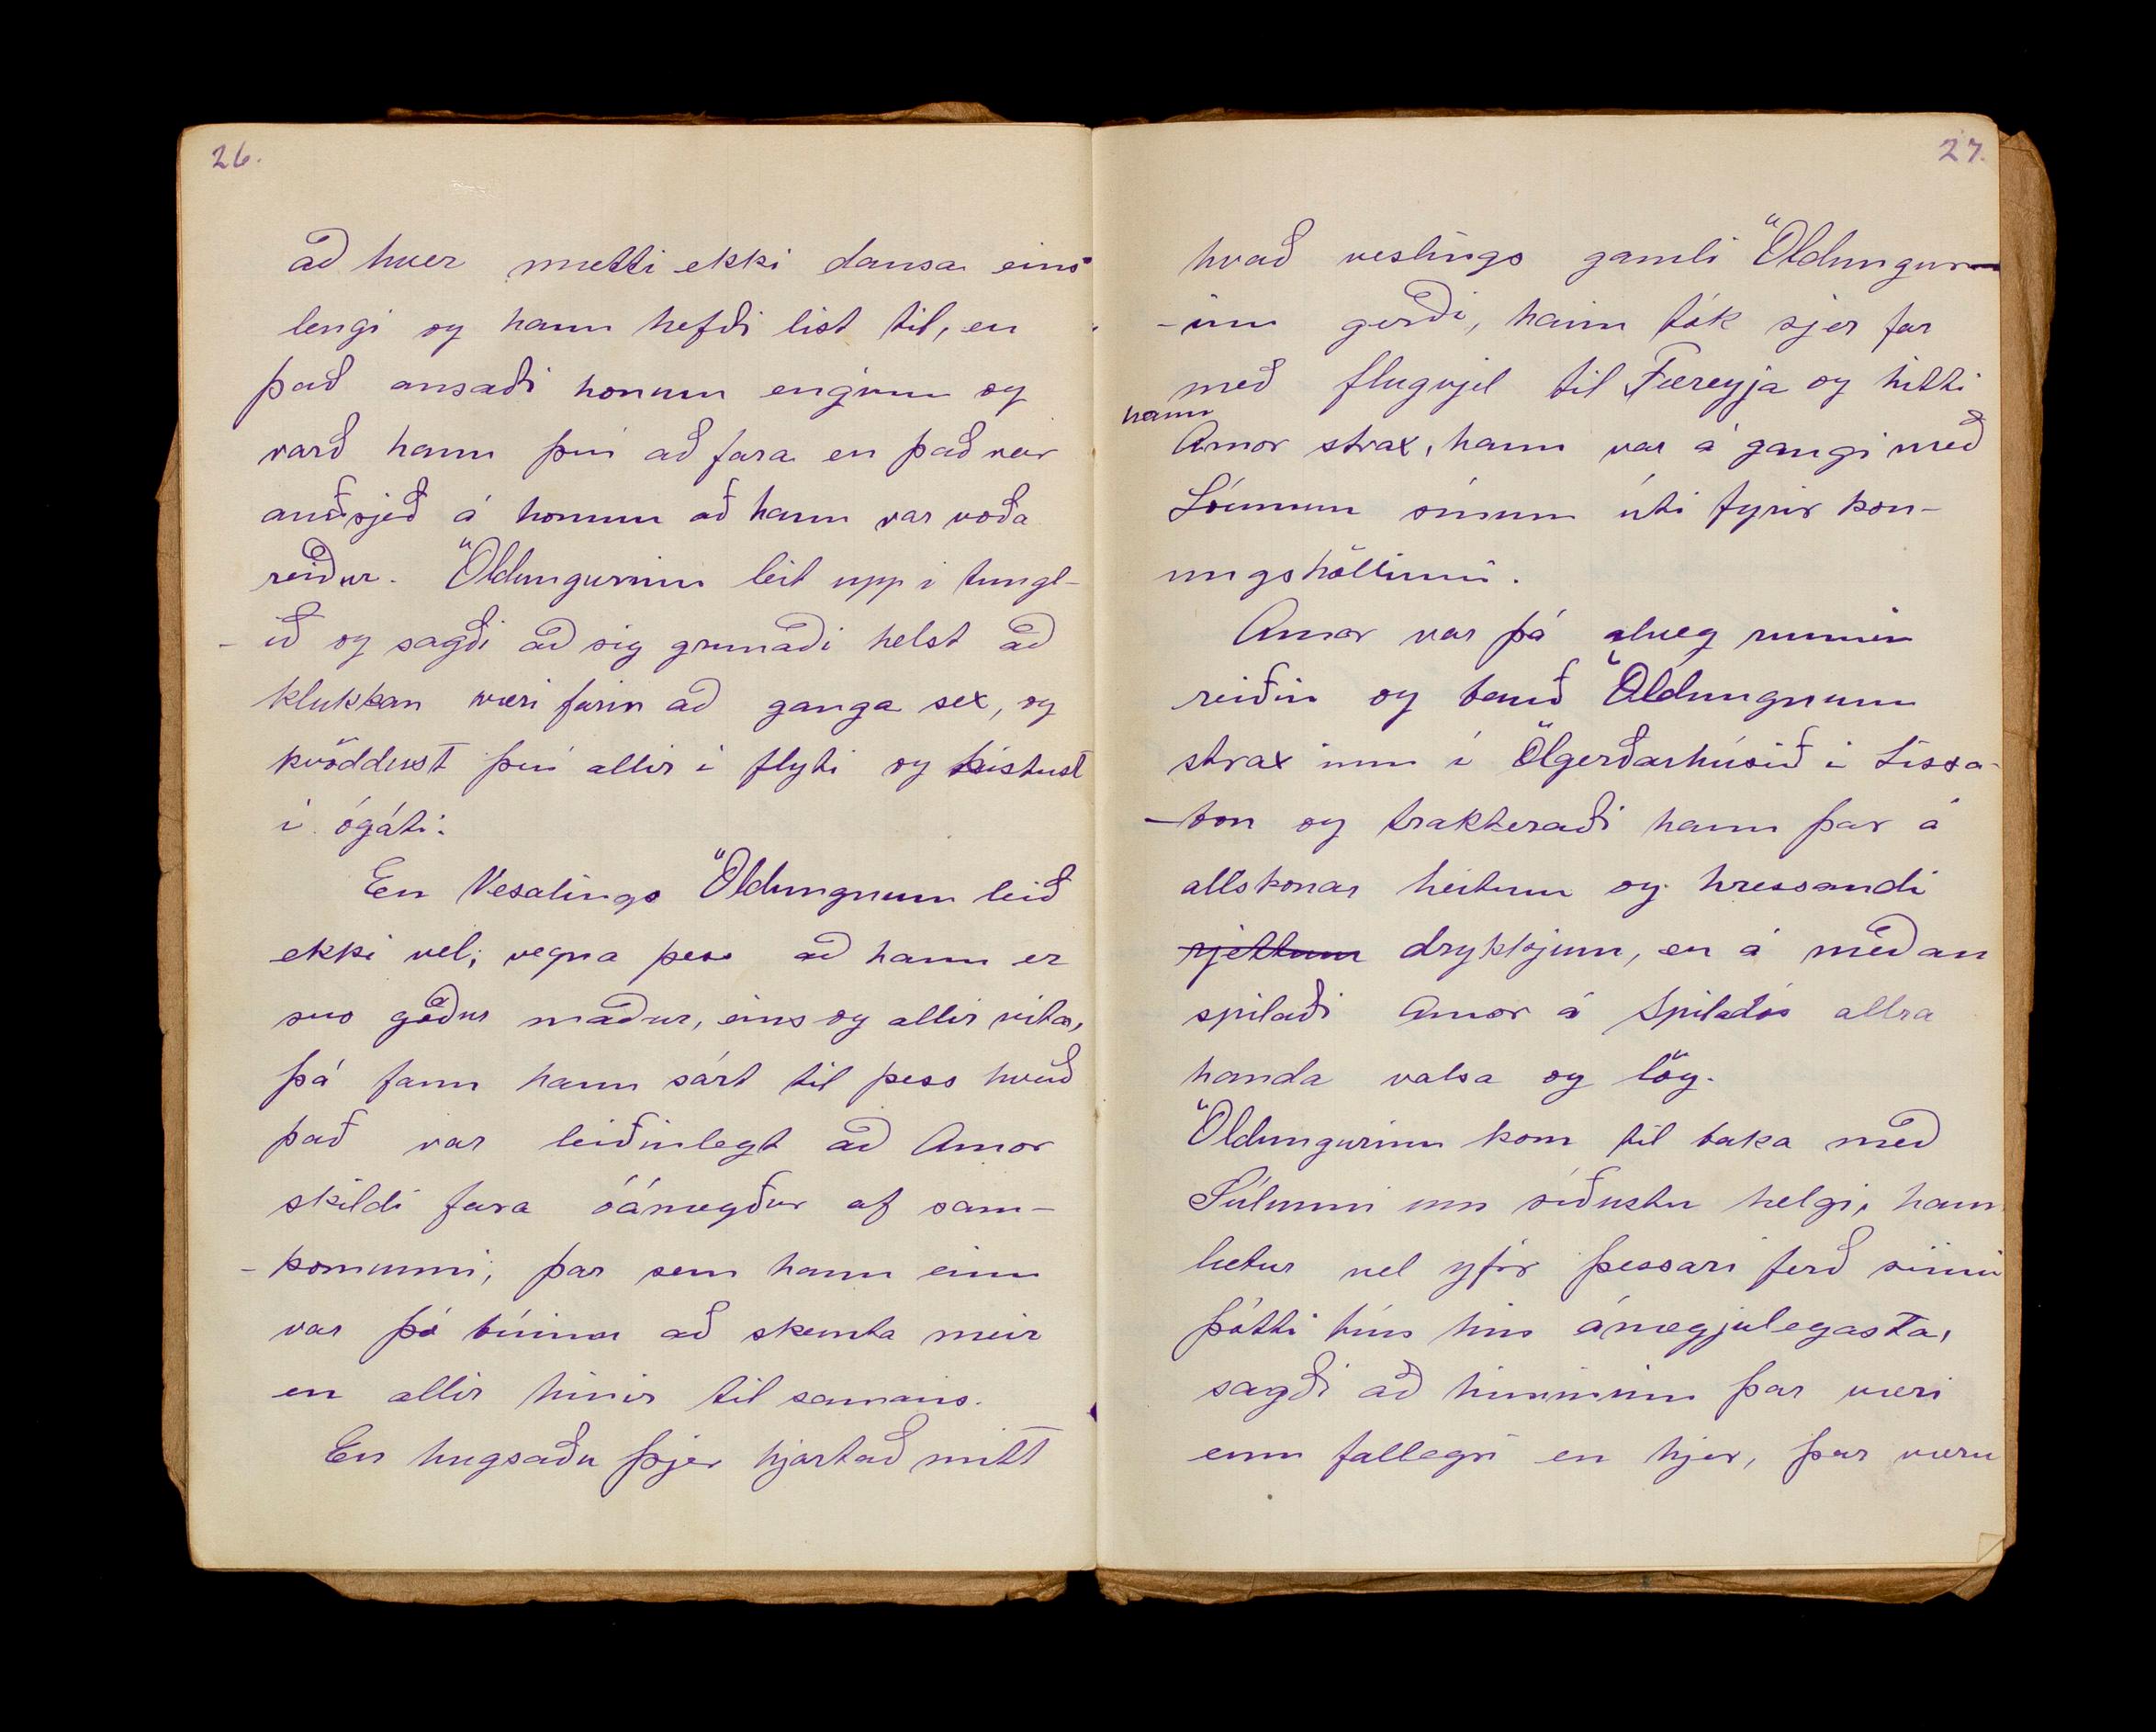 26.
að hver mætti ekki dansa eins
lengi og hann hefði list til, en
það ansaði honum enginn og
varð hann því að fara en það var
auðsjeð á honum að hann var voða
reiður. Öldungurinn leit upp í tungl-
-ið og sagði að sig grunaði helst að
klukkan væri farin að ganga sex, og
kvöddust því allir í flyti og kistust
í ógáti.
En Vesalings Öldungnum leið
ekki vel; vegna þess að hann er
svo góður maður, eins og allir vita,
þá fann hann sárt til þess hvað
það var leiðinlegt að Amor
skildi fara óánægður af sam-
-komunni; þar sem hann einn
var þó búinn að skemta meir
en allir hinir til samans.
En hugsaðu þjer hjartað mitt
27.
hvað veslings gamli Öldungur
-inn gerði, hann tók sjer far
með flugvjel til Færeyja og hitti
hann
Amor strax, hann var á gangi með
Lóunum sínum úti fyrir kon-
ungshöllinni.
Amor var þá alveg runnin
reiðin og bauð Öldungnum
strax inn í Ölgerðarhúsið í Lissa-
-bon og trakteraði hann þar á
allskonar heitum og hressandi
rjettum drykkjum, en á meðan
spilaði Amor á Spiladós allra
handa valsa og lög.
Öldungurinn kom til baka með
Súlunni um síðustu helgi, hann
lætur vel yfir þessari ferð sinni
þótti hún hin ánægjulegasta,
sagði að himininn þar væri
enn fallegri en hjer, þar væru